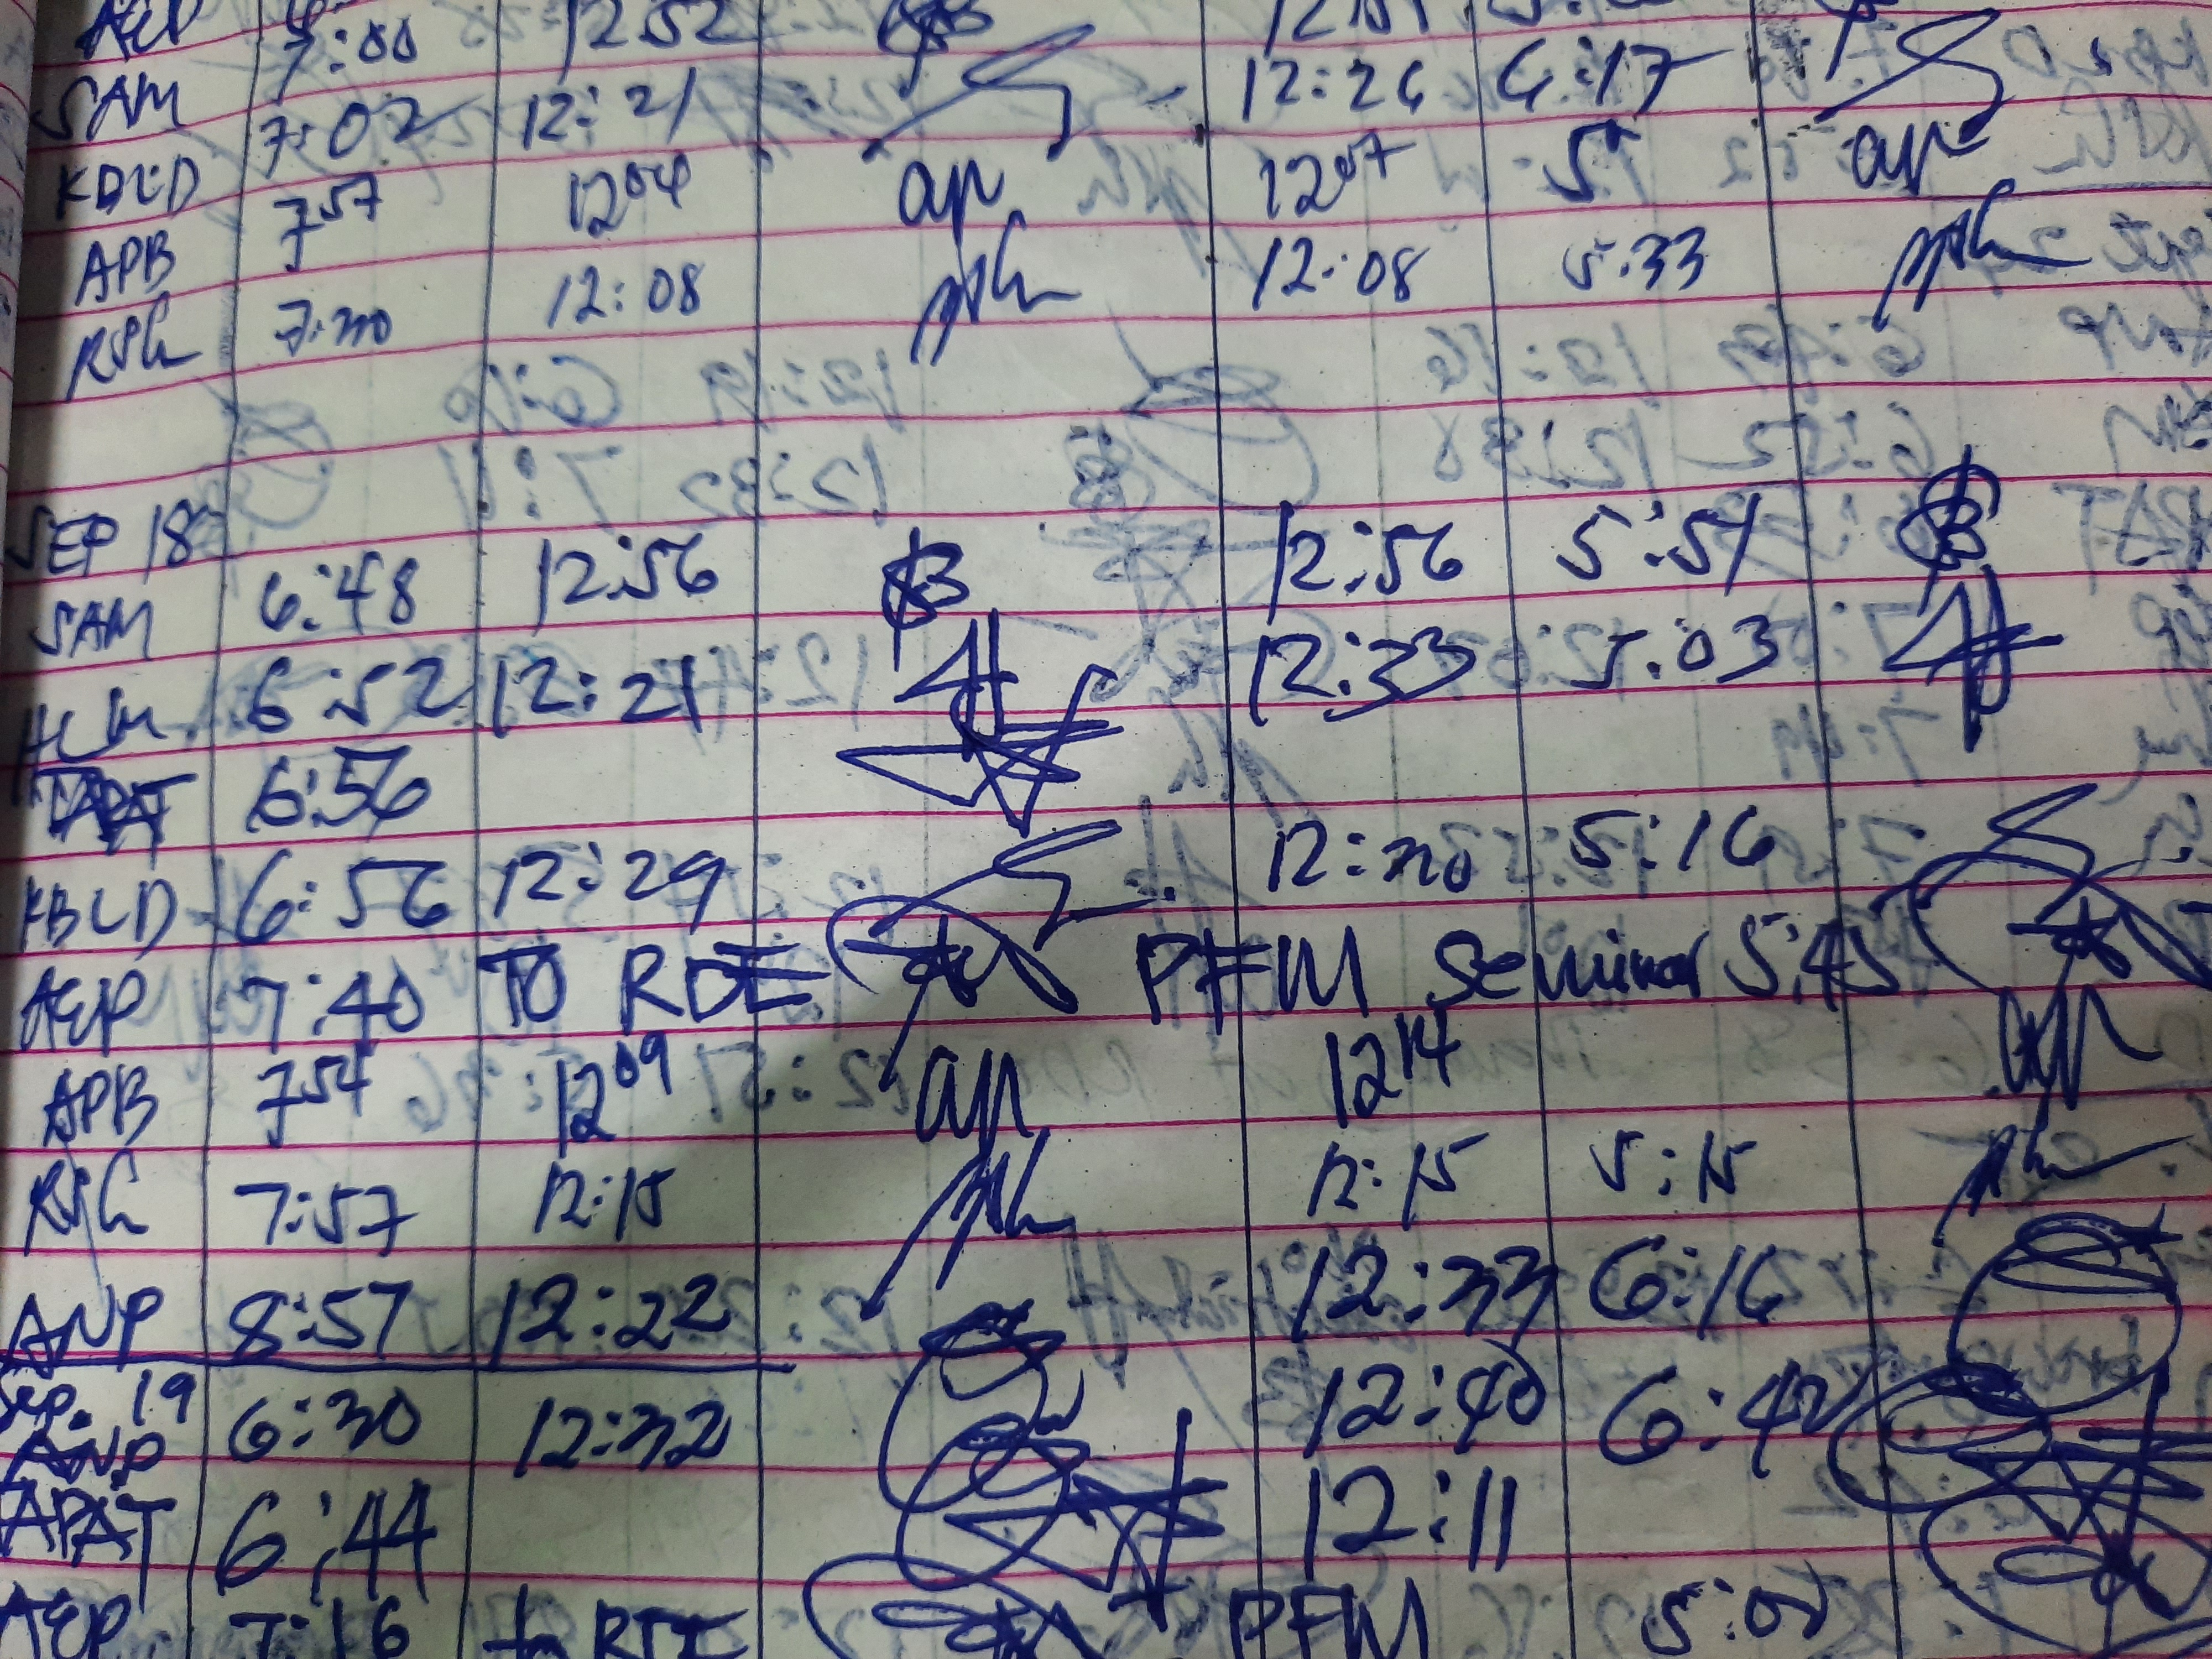 AED 7:00 12:52 12:51
SAM 7:02 12:21 12:26 6:17
KBLD 7:57 12:04 ap 12:07 ap
APB 12:08 12:08 5:33
RSG 7:30
SEP 18
SAM 6:48 12:56 12:56 5:51
HLM 6:52 12:21 12:33 5:03
APAT 6:56
KBLD 6:56 12:29 12:30 5:16
AEP 7:40 TO RDE PFM Seminar 5:45
APB 7:54 12:09 ap 12:14 ap
RSG 7:57 12:15 12:15 5:15
ANP 8:57 12:22 12:33 6:16
Sep. 19
ANP 6:30 12:32 12:40 6:42
APAT 6:44 12:11
AEP 7:16 to RDE PFM